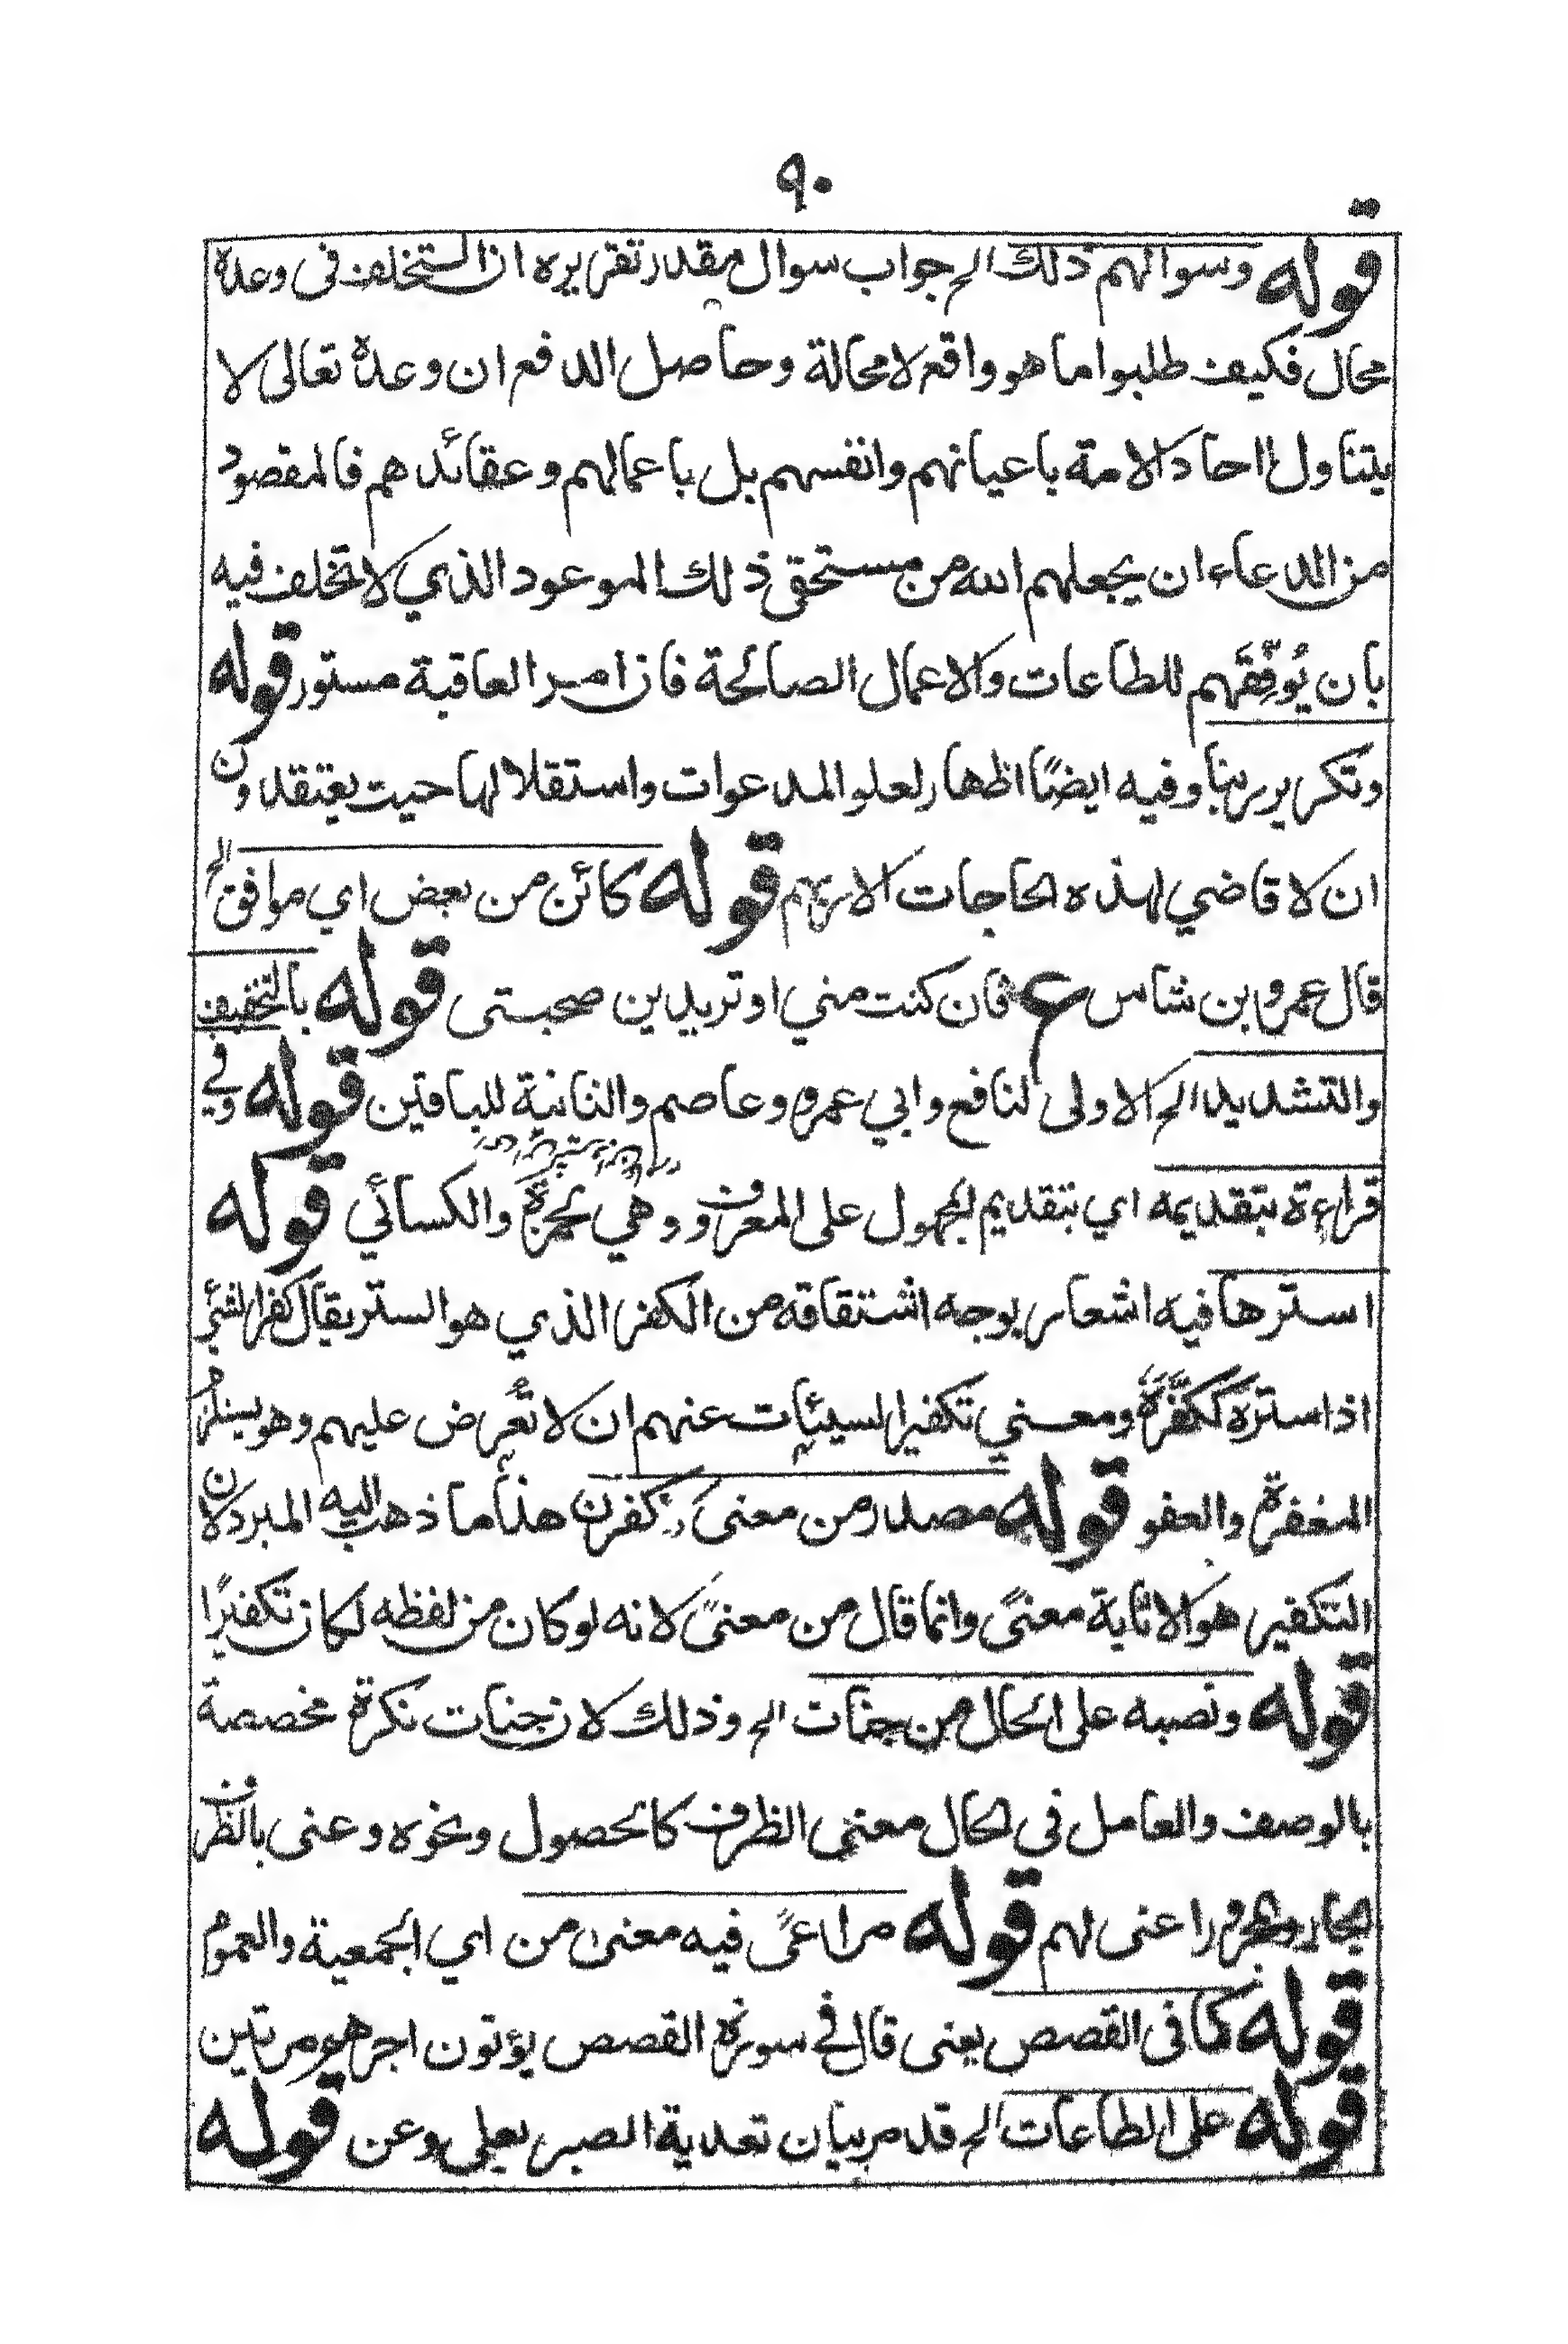 ٩٠
قوله وسوالهم ذلك الخ جواب سوال مقدر تقريره ان التخلف فى وعدة
محال فكيف طلبوا ما هو واقع لا محالة وحاصل الدفع ان وعدهٗ تعالى لا
يتناول احاد الامة باعيانهم وانفسهم بل باعمالهم وعقائدهم فالمقصود
من الدعاء ان يجعلهم الله من مستحقى ذلك الموعود الذي لا تخلف فيه
بان يُوفِّقَهم للطاعات والاعمال الصالحة فان امر العاقبة مستور قوله
وتكرير ربنا وفيه ايضًا اظهار لعلو المدعوات واستقلالها حيث يعتقدون
ان لا قاضي لهذه الحاجات الا ربهم قوله كائن من بعض اي موافق الخ
قال عمرو بن شاس ع فان كنت مني او تريدين صحبتى قوله بالتخفيف
والتشديد الخ الاولى لنافع وابي عمرو وعاصم والثانية للباقين قوله وفي
قراءة بتقديمه اي بتقديم المجهول على المعروف وهي لحمزة والكسائي قوله
استرها فيه اشعار بوجه اشتقاقه من الكفر الذي هو الستر يقال كفر الشئ
اذا سترة ككفَّرَهٗ ومعني تكفير السيئات عنهم ان لا تُعرض عليهم وهو يستلزم
المغفرة والعفو قوله مصدر من معنى لاكفرن هذا ما ذهب اليه المبرد لان
التكفير هو الاثابة معنىً وانما قال من معنىً لانه لو كان من لفظه لكان تكفيرًا
قوله ونصبه على الحال من جنات الخ وذلك لان جنات نكرة مخصصة
بالوصف والعامل فى الحال معنى الظرف كالحصول ونحوه وعنى بالظرف
الجار والمجرور اعنى لهم قوله مراعًى فيه معنى من اي الجمعية والعموم
قوله كما فى القصص يعنى قال في سورة القصص يؤتون اجرهم مرتين
قوله على الطاعات الخ قد مر بيان تعدية الصبر بعلى وعن قوله